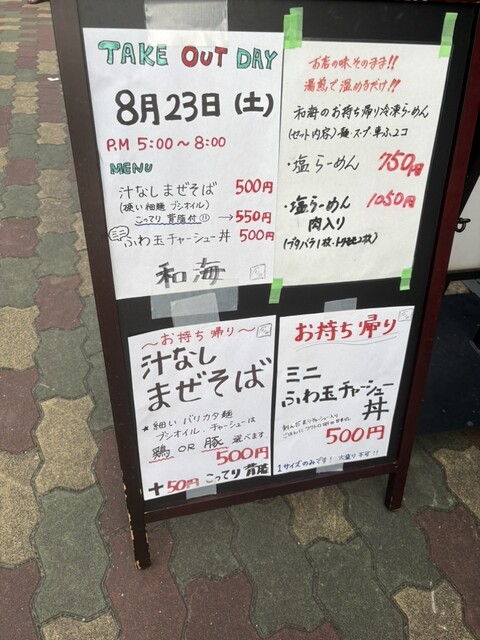 TAKE OUT DAY
8月23日(土)
P.M 5:00〜8:00
MENU
汁なしまぜそば 500円
(硬い細麺 ブシオイル)
こってり 背脂付 → 550円
ミニ ふわ玉チャーシュー丼 500円
和海
お店の味そのまま!!
湯煎で温めるだけ!!
和海のお持ち帰り冷凍らーめん
(セット内容)麺・スープ・車ふ2コ
・塩らーめん 750円
・塩らーめん 1050円
肉入り
(ブタバラ1枚・トリモモ2枚)
〜お持ち帰り〜
汁なし
まぜそば
★細いバリカタ麺
ブシオイル、チャーシューは
鶏 OR 豚 選べます
500円
+50円 こってり背脂
お持ち帰り
ミニ
ふわ玉チャーシュー
丼
500円
1サイズのみです! 大盛り不可!!